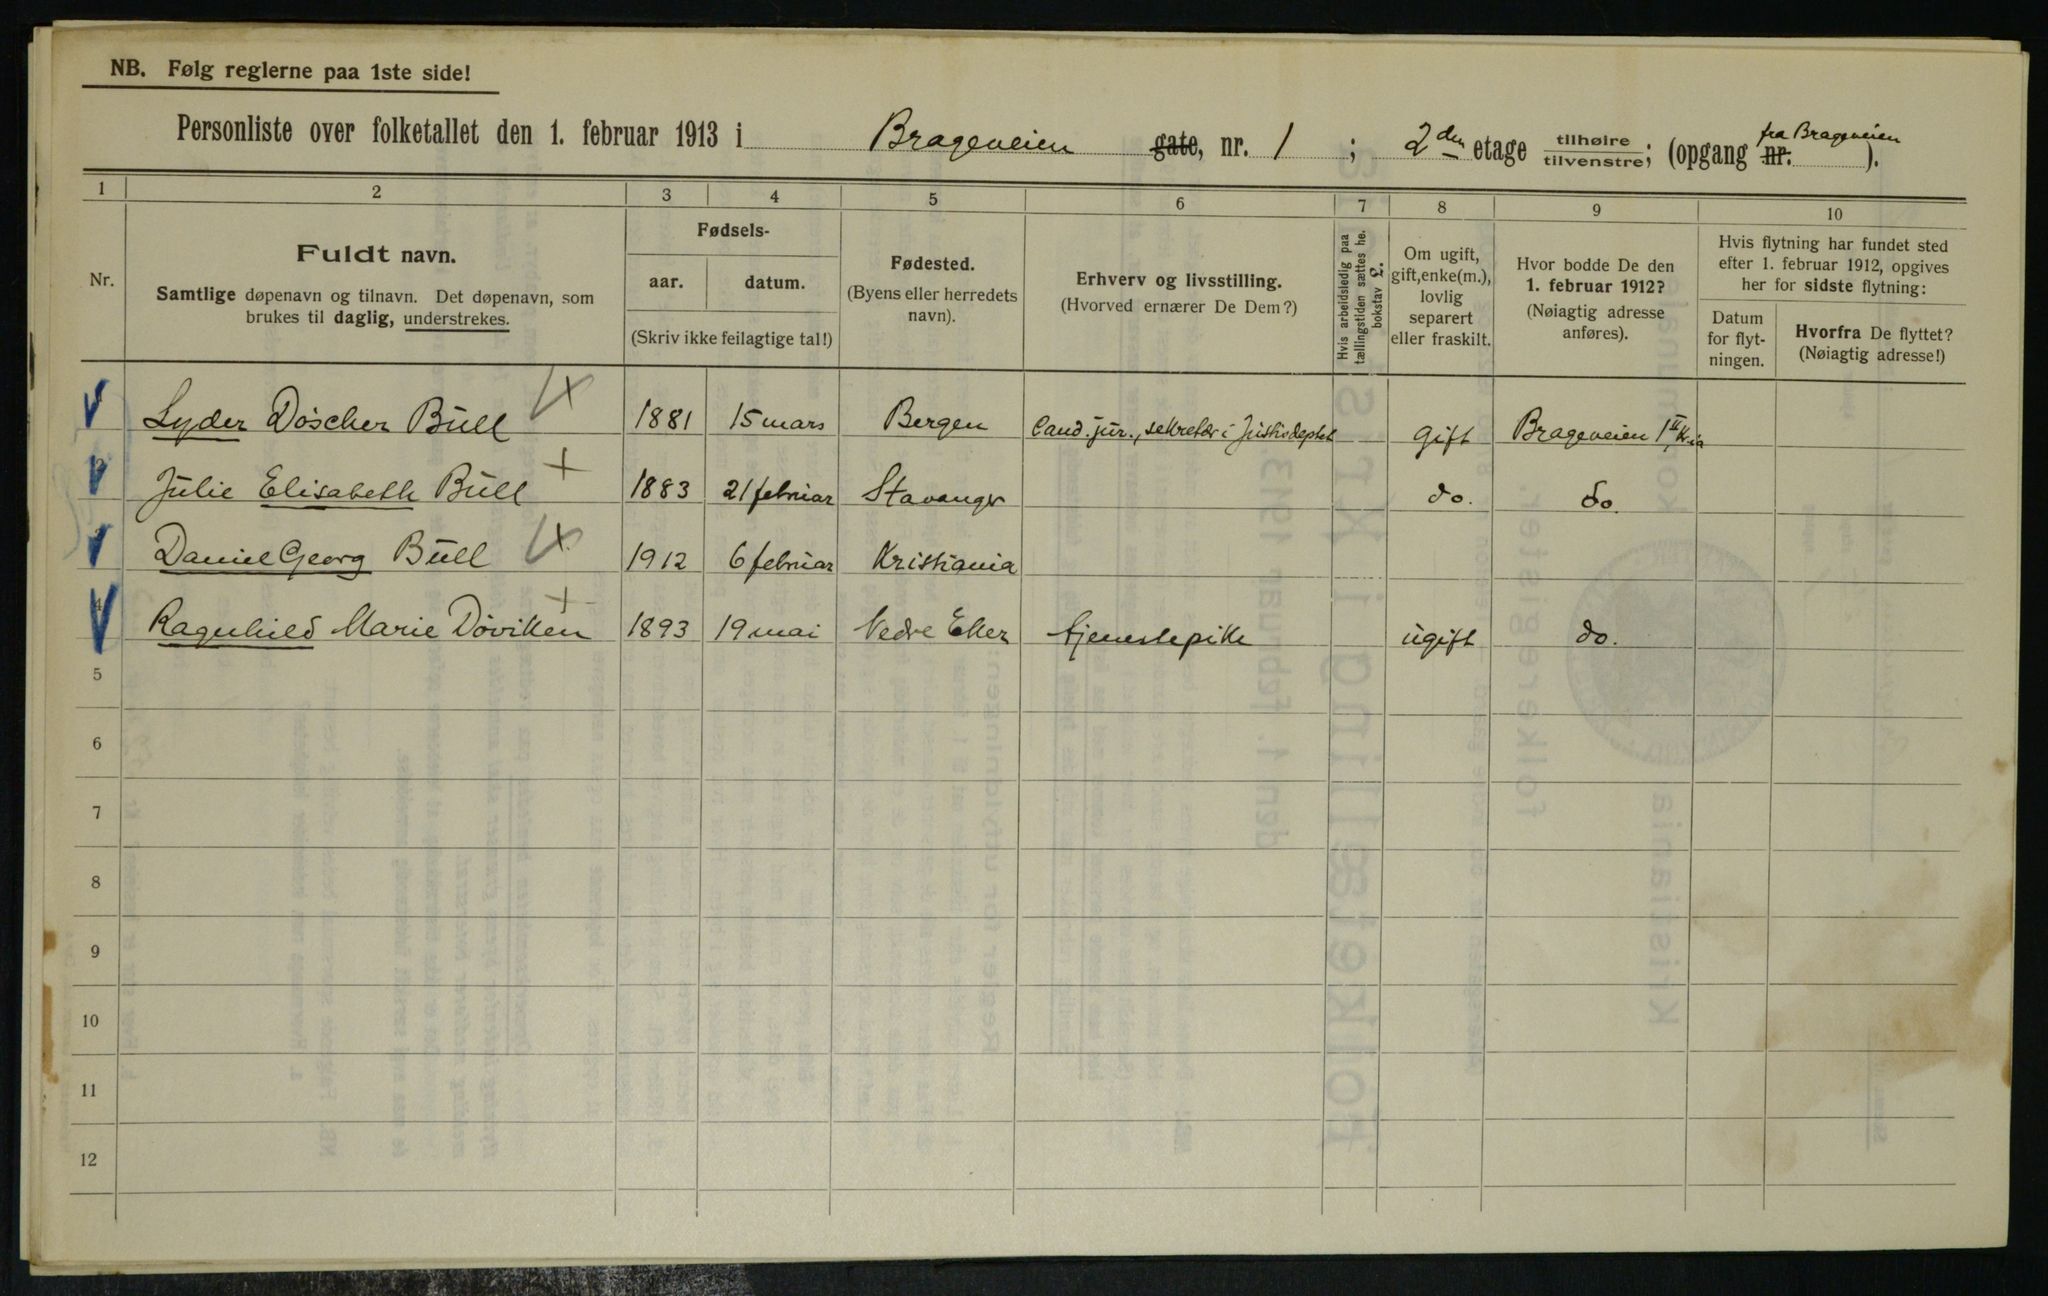 NB. Følg reglerne paa 1ste side!
Personliste over folketallet den 1. februar 1913 i Brageveien gate, nr. 1 ; 2den etage tilhøire tilvenstre; (opgang nr. fra Brageveien ).
1 2 3 4 5 6 7 8 9 10
Nr.
Fuldt navn.
Samtlige døpenavn og tilnavn. Det døpenavn, som
brukes til daglig, understrekes.
Fødsels-
aar. datum.
(Skriv ikke feilagtige tal!)
Fødested.
(Byens eller herredets
navn).
Erhverv og livsstilling.
(Hvorved ernærer De Dem?)
Hvis arbeidsledig paa
tællingstiden sættes he.
bokstav L.
Om ugift,
gift, enke(m.),
lovlig
separert
eller fraskilt.
Hvor bodde De den
1. februar 1912?
(Nøiagtig adresse
anføres).
Hvis flytning har fundet sted
efter 1. februar 1912, opgives
her for sidste flytning:
Datum
for flyt-
ningen.
Hvorfra De flyttet?
(Nøiagtig adresse!)
Lyder Döscher Bull 1881 15 mars Bergen Cand. jur., sekretær i Justisdeptet gift Brageveien 1 II Kr.ia
Julie Elisabeth Bull 1883 21 februar Stavanger do. do.
Daniel Georg Bull 1912 6 februar Kristiania
4 Ragnhild Marie Döviken 1893 19 mai Nedre Eker tjenestepike ugift do.
5
6
7
8
9
10
11
12